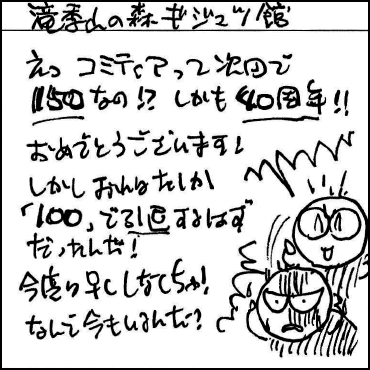 滝季山の森ギジュツ館
えっ コミティアって次回で
150なの!? しかも40周年!!
おめでとうございます!
しかし おんはたしか
「100」で引退するはず
だったんだ!
今度り早くしなくちゃ!
なんで今もいるんだ?